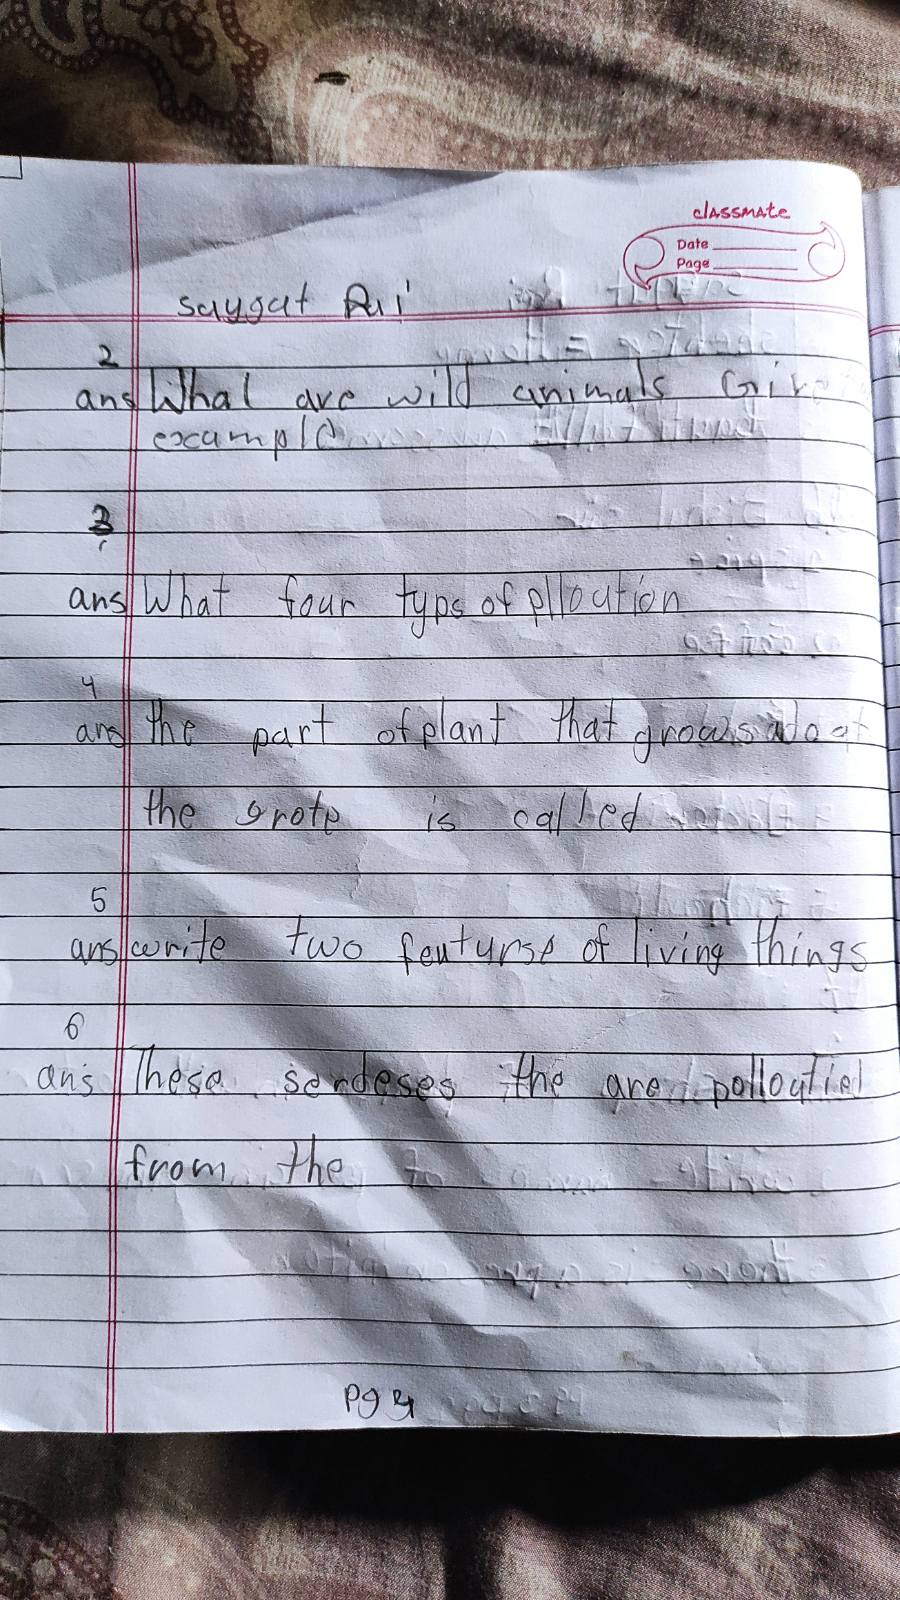 classmate
Date
Page
saygat Rai
2
ans What are wild animals Give
example
3
ans What four typs of plloution
4
ans the part of plant that grows
the grote is called
5
ans write two feuturse of living things
6
ans These serdeses the are
from the
pg